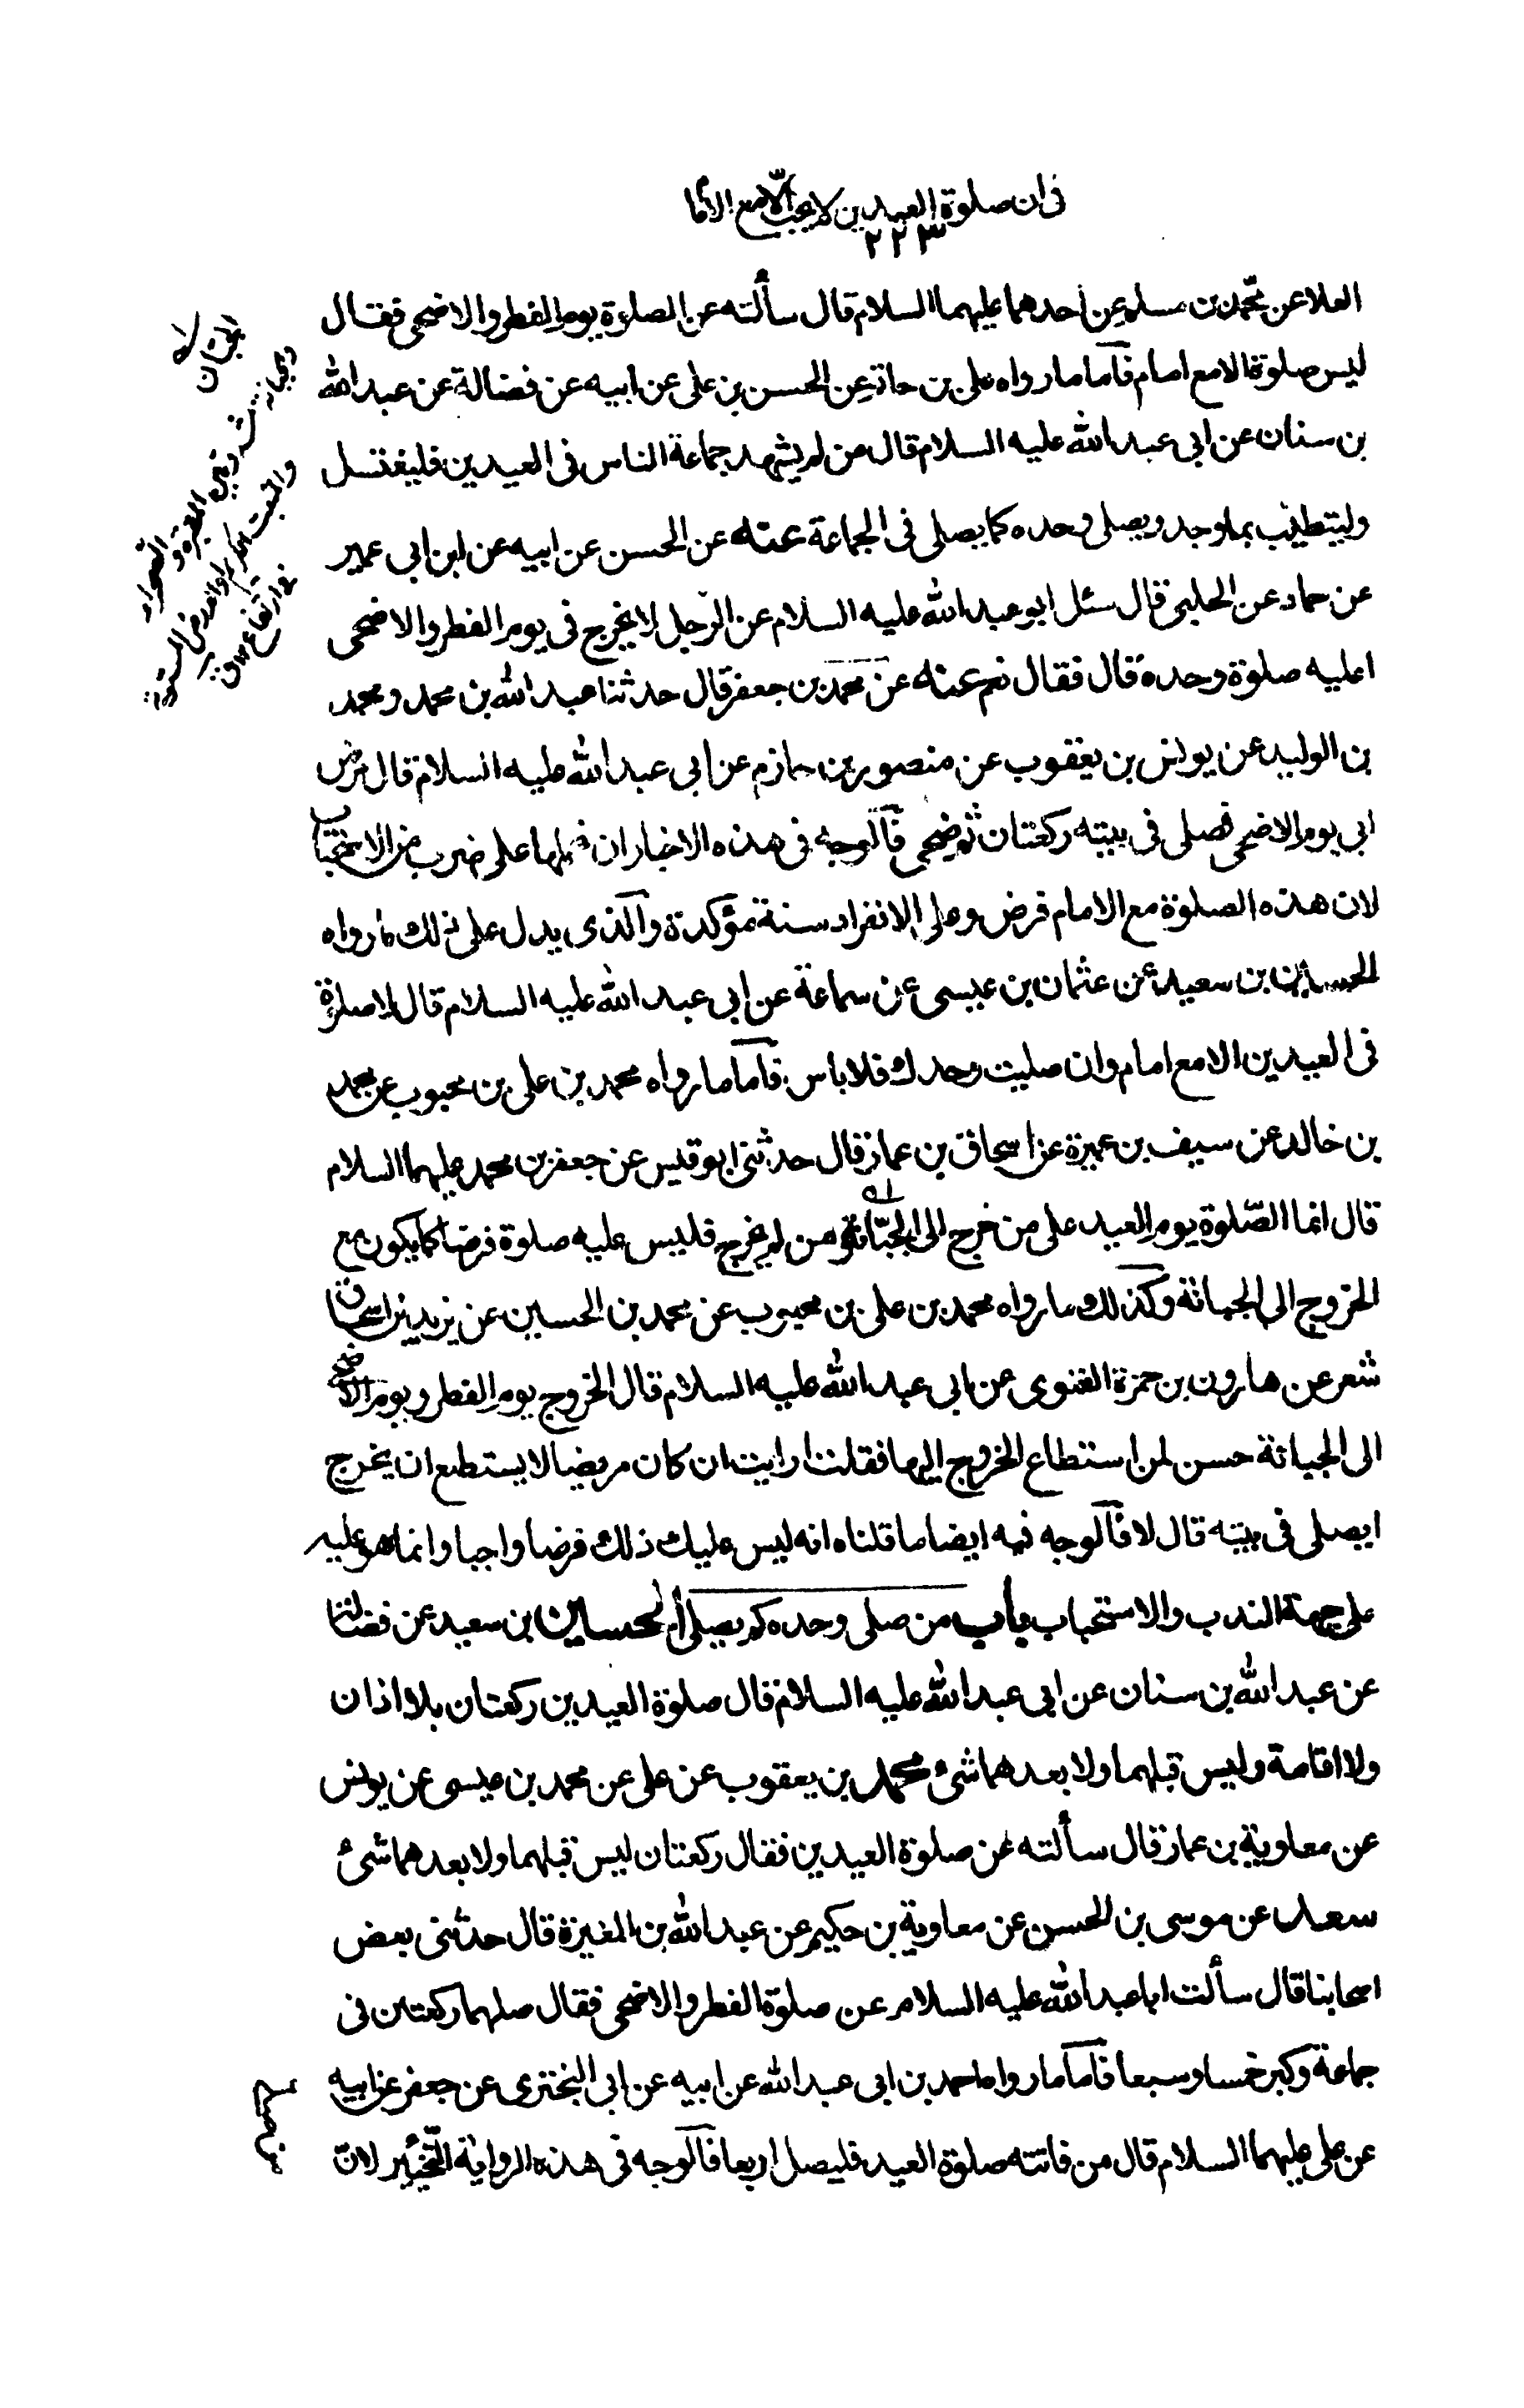 فى ان صلوة العيدين لا يجب الا مع الامام
٢٢٣
العلا عن محمد بن مسلم عن احدهما عليهما السلام قال سألته عن الصلوة يوم الفطر والاضحى فقال
ليس صلوة الا مع امام فاما ما رواه على بن حاتم عن الحسن بن على عن ابيه عن فضالة عن عبد الله
بن سنان عن ابى عبد الله عليه السلام قال من لم يشهد جماعة الناس فى العيدين فليغتسل
وليتطيب بما وجد ويصلى وحده كما يصلى فى الجماعة عنه عن الحسن عن ابيه عن ابن ابى عمير
عن حماد عن الحلبى قال سئل ابو عبد الله عليه السلام عن الرجل لا يخرج فى يوم الفطر والاضحى
اعليه صلوة وحده قال فقال نعم عنه عن محمد بن جعفر قال حدثنا عبد الله بن محمد و محمد
بن الوليد عن يونس بن يعقوب عن منصور بن حازم عن ابى عبد الله عليه السلام قال مرض
ابى يوم الاضحى فصلى فى بيته ركعتان ثم ضحى فالوجه فى هذه الاخبار ان نحملها على ضرب من الاستحباب
لان هذه الصلوة مع الامام فرض وعلى الانفراد سنة مؤكدة والذى يدل على ذلك ما رواه
الحسين بن سعيد عن عثمان بن عيسى عن سماعة عن ابى عبد الله عليه السلام قال لا صلوة
فى العيدين الا مع امام وان صليت وحدك فلا باس فاما ما رواه محمد بن على بن محبوب عن محمد
بن خالد عن سيف بن عميرة عن اسحاق بن عمار قال حدثنى ابو قيس عن جعفر بن محمد عليهما السلام
قال انما الصلوة يوم العيد على من خرج الى الجبانة ومن لم يخرج فليس عليه صلوة فرضا كما يكون مع
الخروج الى الجبانة وكذلك ما رواه محمد بن على بن محبوب عن محمد بن الحسين عن يزيد بن اسحاق
شعر عن هارون بن حمزة الغنوى عن ابى عبد الله عليه السلام قال الخروج يوم الفطر و يوم الاضحى
الى الجبانة حسن لمن استطاع الخروج اليها فقلت ارايت ان كان مريضا لا يستطيع ان يخرج
ايصلى فى بيته قال لا فالوجه فيه ايضا ما قلناه انه ليس عليك ذلك فرضا واجبا وانما هو عليه
على جهة الندب والاستحباب باب من صلى وحده كم يصلى الحسين بن سعيد عن فضالة
عن عبد الله بن سنان عن ابى عبد الله عليه السلام قال صلوة العيدين ركعتان بلا اذان
ولا اقامة وليس قبلهما ولا بعدهما شئ محمد بن يعقوب عن على عن محمد بن عيسى عن يونس
عن معاوية بن عمار قال سألته عن صلوة العيدين فقال ركعتان ليس قبلهما ولا بعدهما شئ
سعد عن موسى بن الحسن عن معاوية بن حكيم عن عبد الله بن المغيرة قال حدثنى بعض
اصحابنا قال سألت ابا عبد الله عليه السلام عن صلوة الفطر والاضحى فقال صلهما ركعتين فى
جماعة وكبر خمسا وسبعا فاما ما رواه احمد بن ابى عبد الله عن ابيه عن ابى البخترى عن جعفر عن ابيه
عن على عليهما السلام قال من فاتته صلوة العيد فليصل اربعا فالوجه فى هذه الرواية التخيير لان